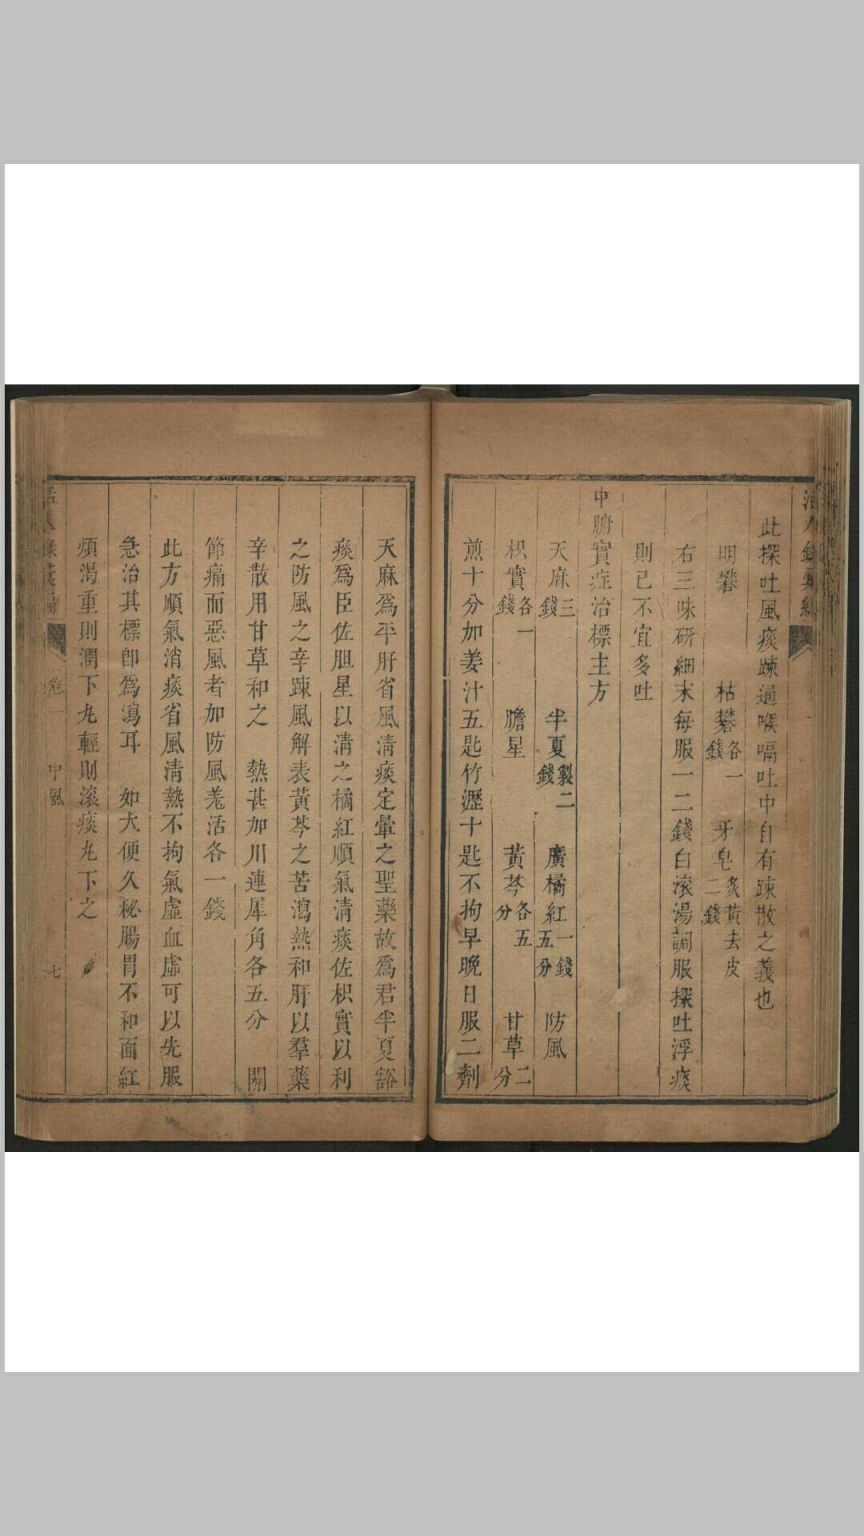 此探吐風痰踈通喉嗝吐中自有踈散之義也
明礬　枯礬各一錢　牙皂炙黃去皮二錢
右三味研細末每服一二錢白滚湯調服探吐浮痰
則已不宜多吐
中腑實症治標主方
天麻三錢　半夏製二錢　廣橘紅一錢五分　防風
枳實各一錢　膽星　黃芩各五分　甘草二分
煎十分加姜汁五匙竹瀝十匙不拘早晚日服二劑
天麻爲平肝省風清痰定暈之聖藥故爲君半夏豁
痰爲臣佐胆星以清之橘紅順氣清痰佐枳實以利
之防風之辛踈風解表黃芩之苦瀉熱和肝以羣藥
辛散用甘草和之　熱甚加川連犀角各五分　關
節痛而惡風者加防風羗活各一錢
此方順氣消痰省風清熱不拘氣虛血虛可以先服
急治其標卽爲瀉耳　如大便久秘腸胃不和面紅
煩渴重則潤下丸輕則滚痰丸下之
卷一　中風　七